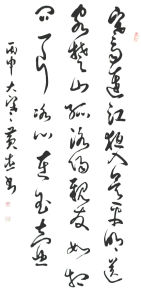 寒雨連江夜入吳平明送
客楚山孤洛陽親友如相
问一片冰心在玉壶
丙申大寒黄书